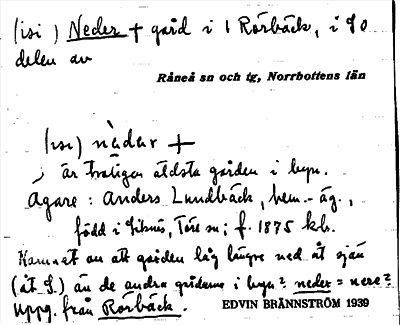 (isi ) Neder + gård i 1 Rörbäck, i SO
delen av
Råneå sn och tg, Norrbottens län
(isi) nèdar +
är troligen äldsta gården i byn.
Ägare : Anders Lundbäck, hem.-äg.,
född i Siknäs, Töre sn; f. 1875 kb.
Kanske av att gården låg längre ned åt sjön
(åt S.) än de andra gårdarna i byn? neder = nere?
Uppg. från Rörbäck.
EDVIN BRÄNNSTRÖM 1939